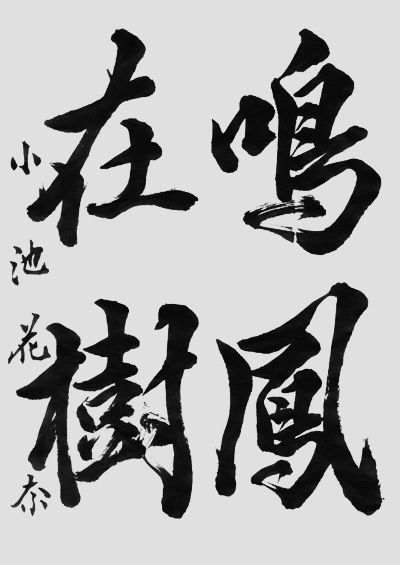 鳴鳳
在樹
小池花奈